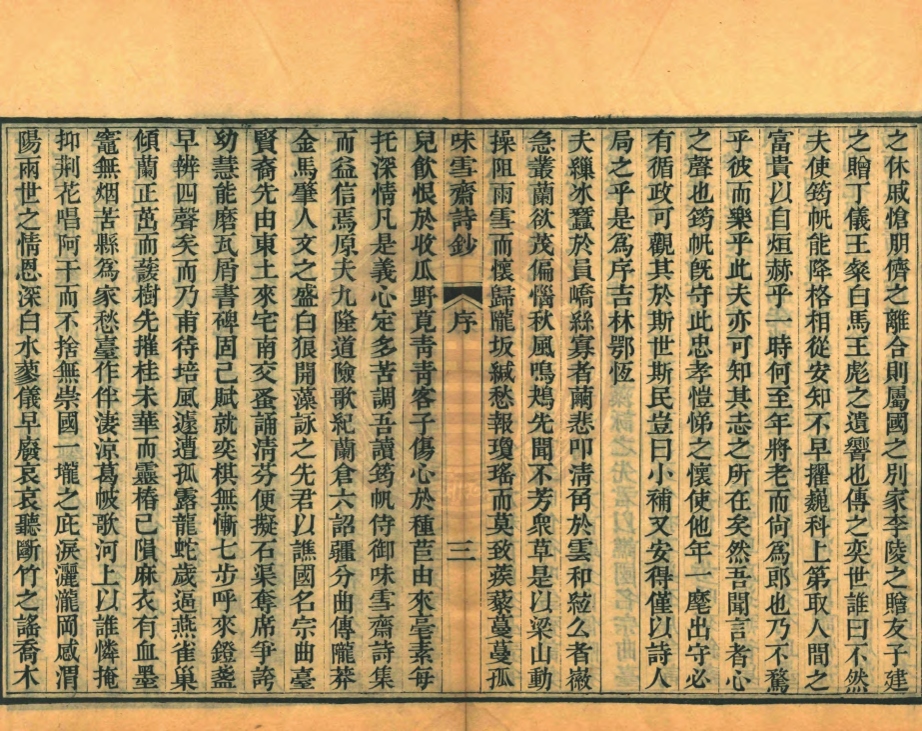 之休戚愴朋儕之離合則屬國之別家李陵之贈友子建
之贈丁儀王粲白馬王彪之遺響也傳之奕世誰曰不然
夫使筠帆能降格相從安知不早擢巍科上第取人間之
富貴以自烜赫乎一時何至年將老而尙爲郎也乃不騖
乎彼而樂乎此夫亦可知其志之所在矣然吾聞言者心
之聲也筠帆旣守此忠孝愷悌之懷使他年一麾出守必
有循政可觀其於斯世斯民豈曰小補又安得僅以詩人
局之乎是爲序吉林鄂恆
夫繅冰蠶於員嶠絲寡者繭悲叩淸角於雲和絃么者徽
急叢蘭欲茂偏惱秋風鳴鴂先聞不芳衆草是以梁山動
操阻雨雪而懷歸隴坂緘愁報瓊瑤而莫致蒺藜蔓蔓孤
味雪齋詩鈔 序 三
兒飮恨於收瓜野莧靑靑客子傷心於種苣由來毫素每
托深情凡是義心定多苦調吾讀筠帆侍御味雪齋詩集
而益信焉原夫九隆道險歌紀蘭倉六詔疆分曲傳隴莽
金馬肇人文之盛白狼開藻詠之先君以譙國名宗曲臺
賢裔先由東土來宅南交蚤誦淸芬便擬石渠奪席爭誇
幼慧能磨瓦屑書碑固已賦就奕棋無慚七步呼來鐙盞
早辨四聲矣而乃甫待培風遽遭孤露龍蛇歲逼燕雀巢
傾蘭正茁而護樹先摧桂未華而靈椿已隕麻衣有血墨
竈無烟苦縣爲家愁臺作伴淒涼葛帔歌河上以誰憐掩
抑荆花唱阿干而不捨無祟國一壠之庇淚灑瀧岡感渭
陽兩世之情恩深白水蓼儀早廢哀哀聽斷竹之謠喬木